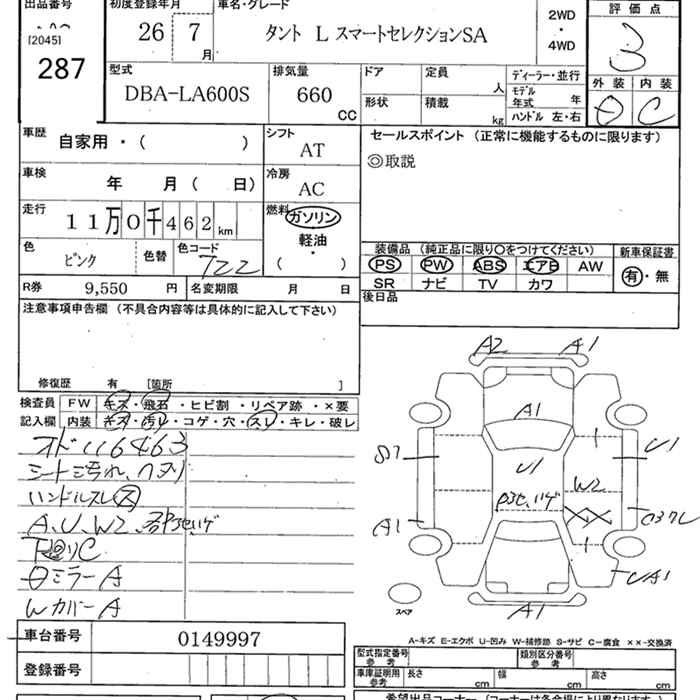 出品番号
[2045]
287
初度登録年月
26 7 月
車名・グレード
タント L スマートセレクションSA
2WD
・
4WD
評価点
3
外装 内装
D C
型式
DBA-LA600S
排気量
660
CC
ドア
形状
定員
人
積載
kg
ディーラー・並行
モデル
年式
年
ハンドル 左・右
車歴
自家用・( )
シフト
AT
セールスポイント (正常に機能するものに限ります)
◎取説
車検
年 月( 日)
冷房
AC
走行
11万0千462km
燃料
ガソリン
軽油
・
( )
色
ピンク
色替
色コード
T22
装備品 (純正品に限り○をつけてください)
PS PW ABS エアB AW
SR ナビ TV カワ
新車保証書
有・無
後日品
R券
9,550 円
名変期限
月 日
注意事項申告欄 (不具合内容等は具体的に記入して下さい)
修復歴 有 [箇所 ]
検査員
記入欄
FW キズ・飛石・ヒビ割・リペア跡・×要
内装 キズ・汚レ・コゲ・穴・スレ・キレ・破レ
オド116463
シート汚れ、ヘタリ
ハンドルスレ(ス)
A、U、W2
下回りC
ミラーA
WカバーA
A2 A1
A1
U1
U1
W2
XX
A1
UA1
A1
スペア
A-キズ E-エクボ U-凹み W-補修跡 S-サビ C-腐食 ××-交換済
車台番号
0149997
登録番号
型式指定番号
参考
類別区分番号
参考
車庫証明用
参考
長さ
cm
幅
cm
高さ
cm
希望出品コーナー